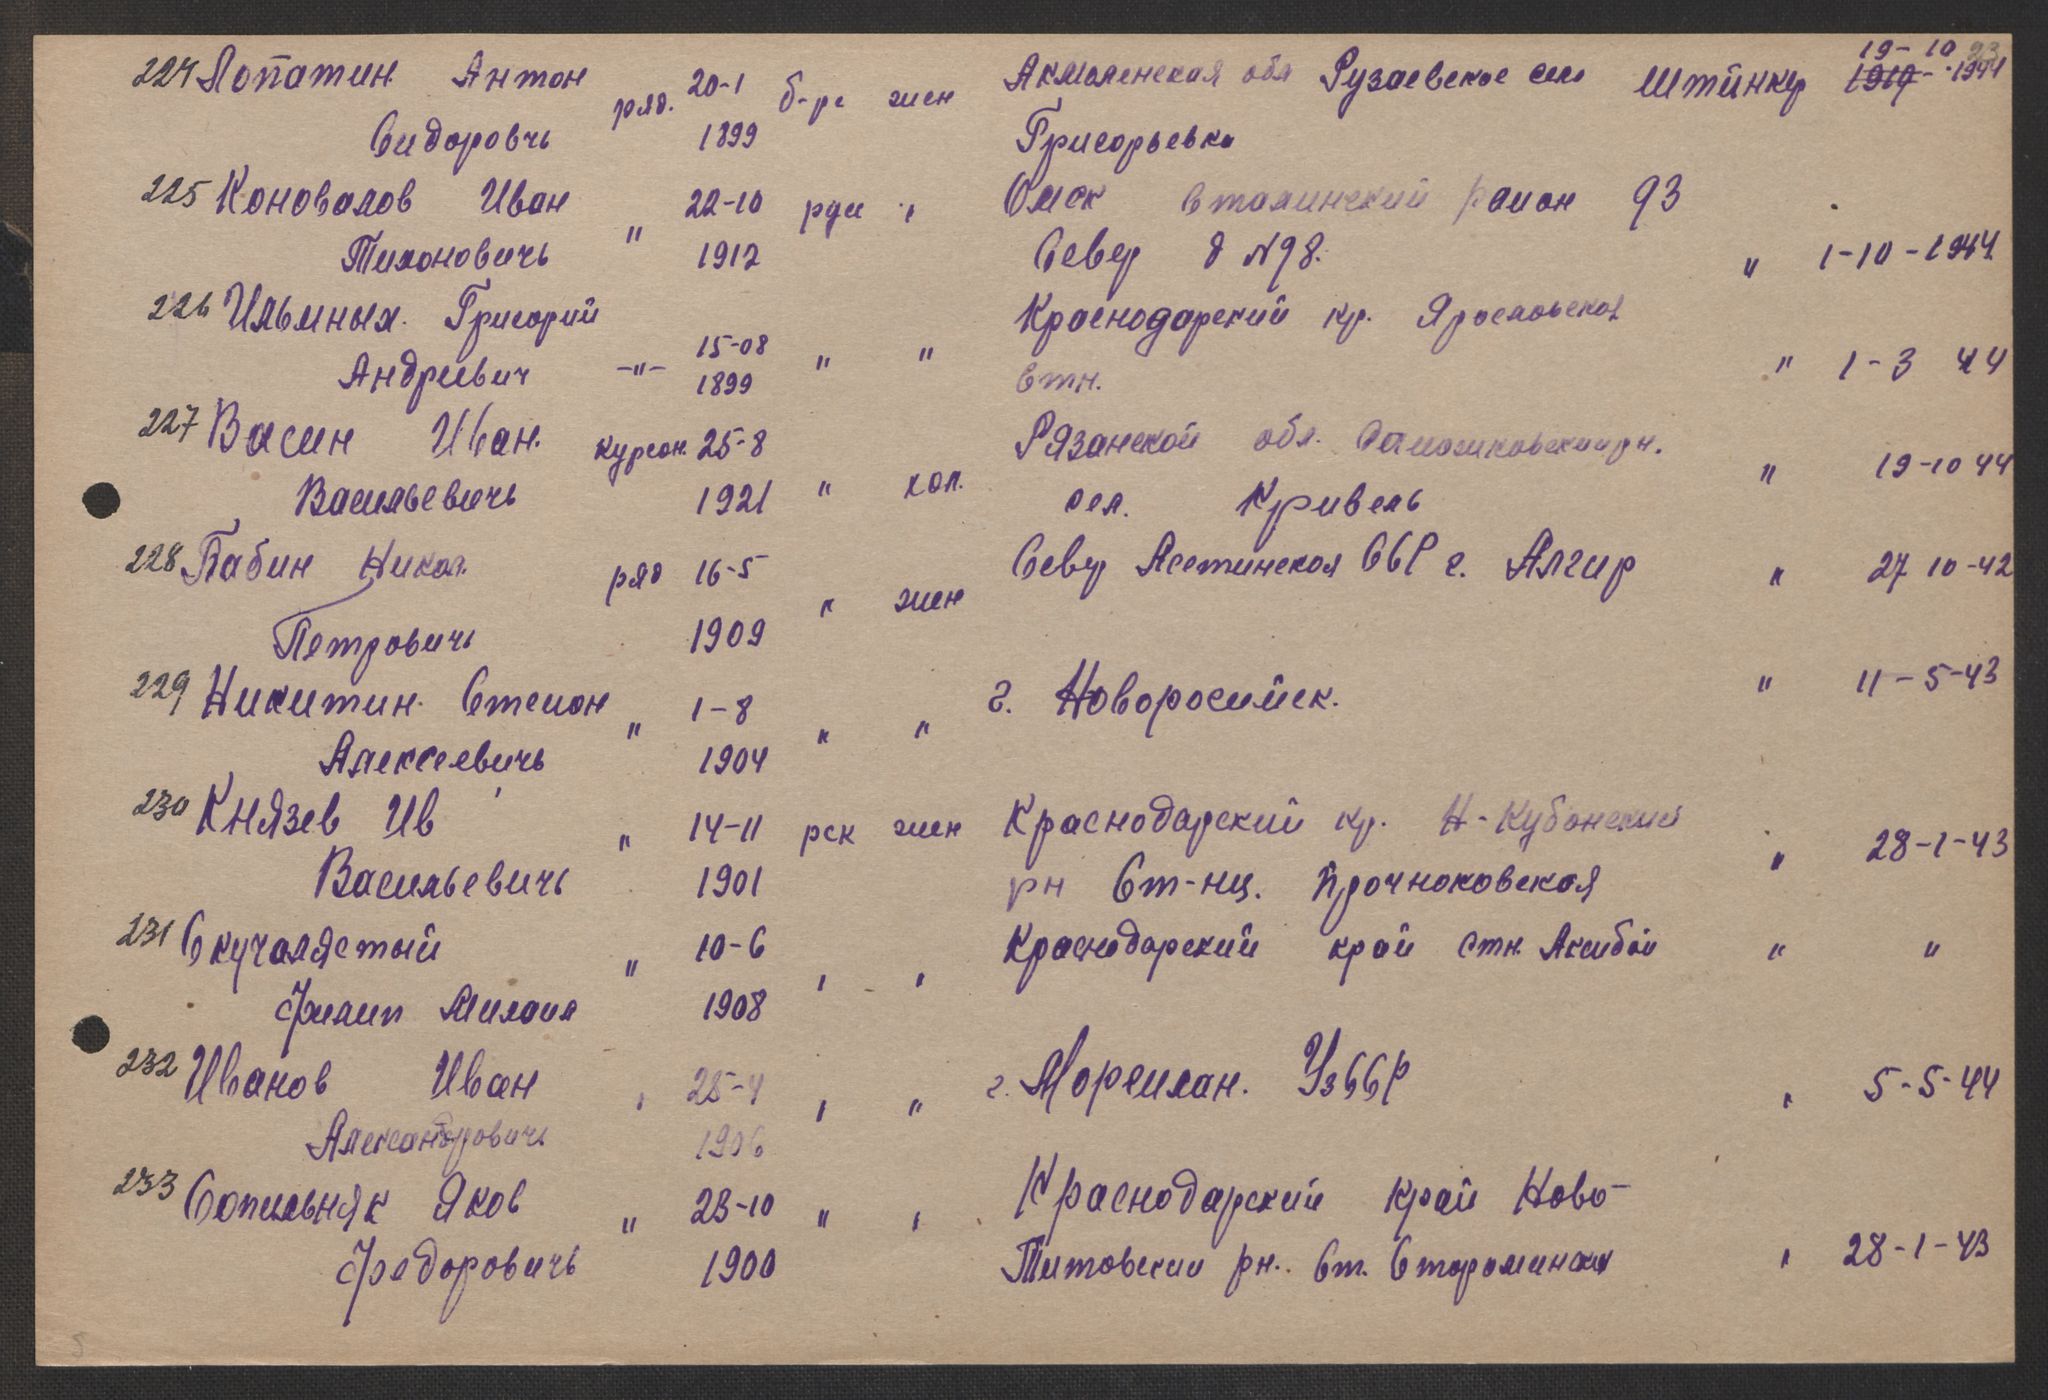 19-10 23
224 Лопатин Антон ряд. 20-1 б-рг жен Акмоленская обл Рузаевское село Штинкер 1919 - 1944
Сидоровчь 1899 Григорьевка
225 Коновалов Иван " 22-10 рдн " Омск Сталинский район 93
Тихоновичь 1912 Север д N98. " 1-10-1944
226 Ильиных. Григорий Краснодарский кр. Ярословская
Андриевич -"- 15-08 1899 " " Стн. " 1-3 44
227 Васин Иван. курсан. 25-8 Рязанской обл.
Васильевичь 1921 " хол. сел. Кривель " 19-10 44
228 Бабин Никол. ряд 16-5 " жен Север Асетинская ССР г. Алгир " 27 10-42
Петровичь 1909
229 Никитин. Степон " 1-8 " " г. Новоросийск. " 11-5-43
Алексеевичь 1904
230 Князев Ив " 14-11 рск жен Краснодарский кр. Н-Кубонский
Васильевичь 1901 рн Ст-нц. Прочноковская " 28-1-43
231 Скучалястый " 10-6 " " Краснодорский край стн. " "
Филип Михоил 1908
232 Иванов Иван " 25-4 " " г. Моргилан. УзССР " 5-5-44
Александровичь 1906
233 Сопильняк Яков " 23-10 " " Краснодарский край Ново-
Федоровичь 1900 Титовский рн. Ст. Староминская " 28-1-43